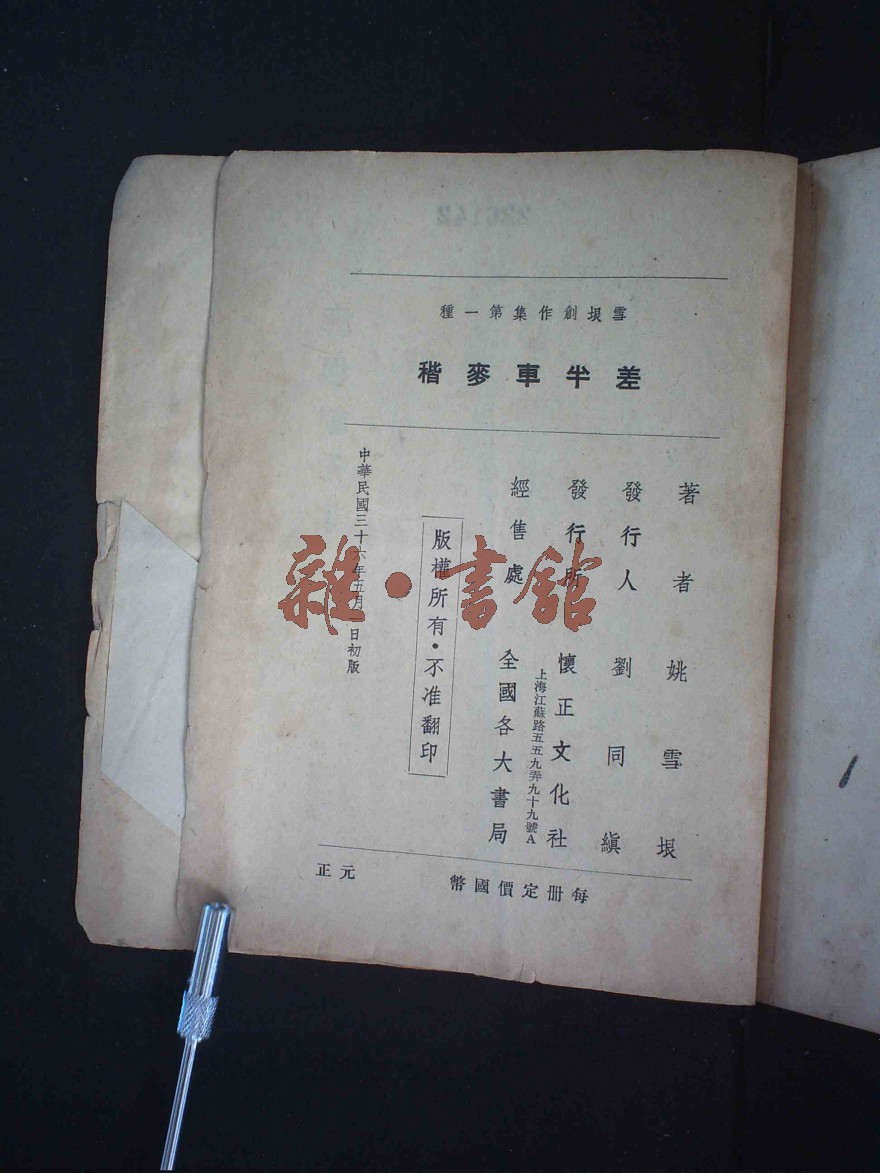 雪垠創作集第一種
差半車麥稭
著者 姚雪垠
發行人 劉同縝
發行所 懷正文化社
上海江蘇路五五九弄九十九號A
經售處 全國各大書局
版權所有·不准翻印
中華民國三十六年五月一日初版
每冊定價國幣 元正
雜·書館